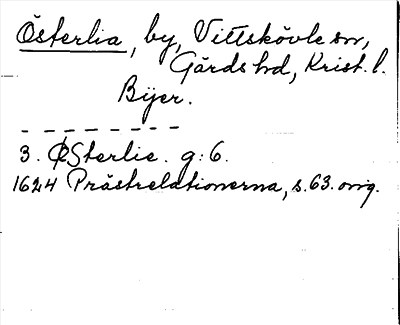 Österlia, by, Vittskövle sn,
Gärds hd, Krist. l.
Bijer.
3. ØSterlie. g: 6.
1624 Prästrelationerna, s. 63. orig.